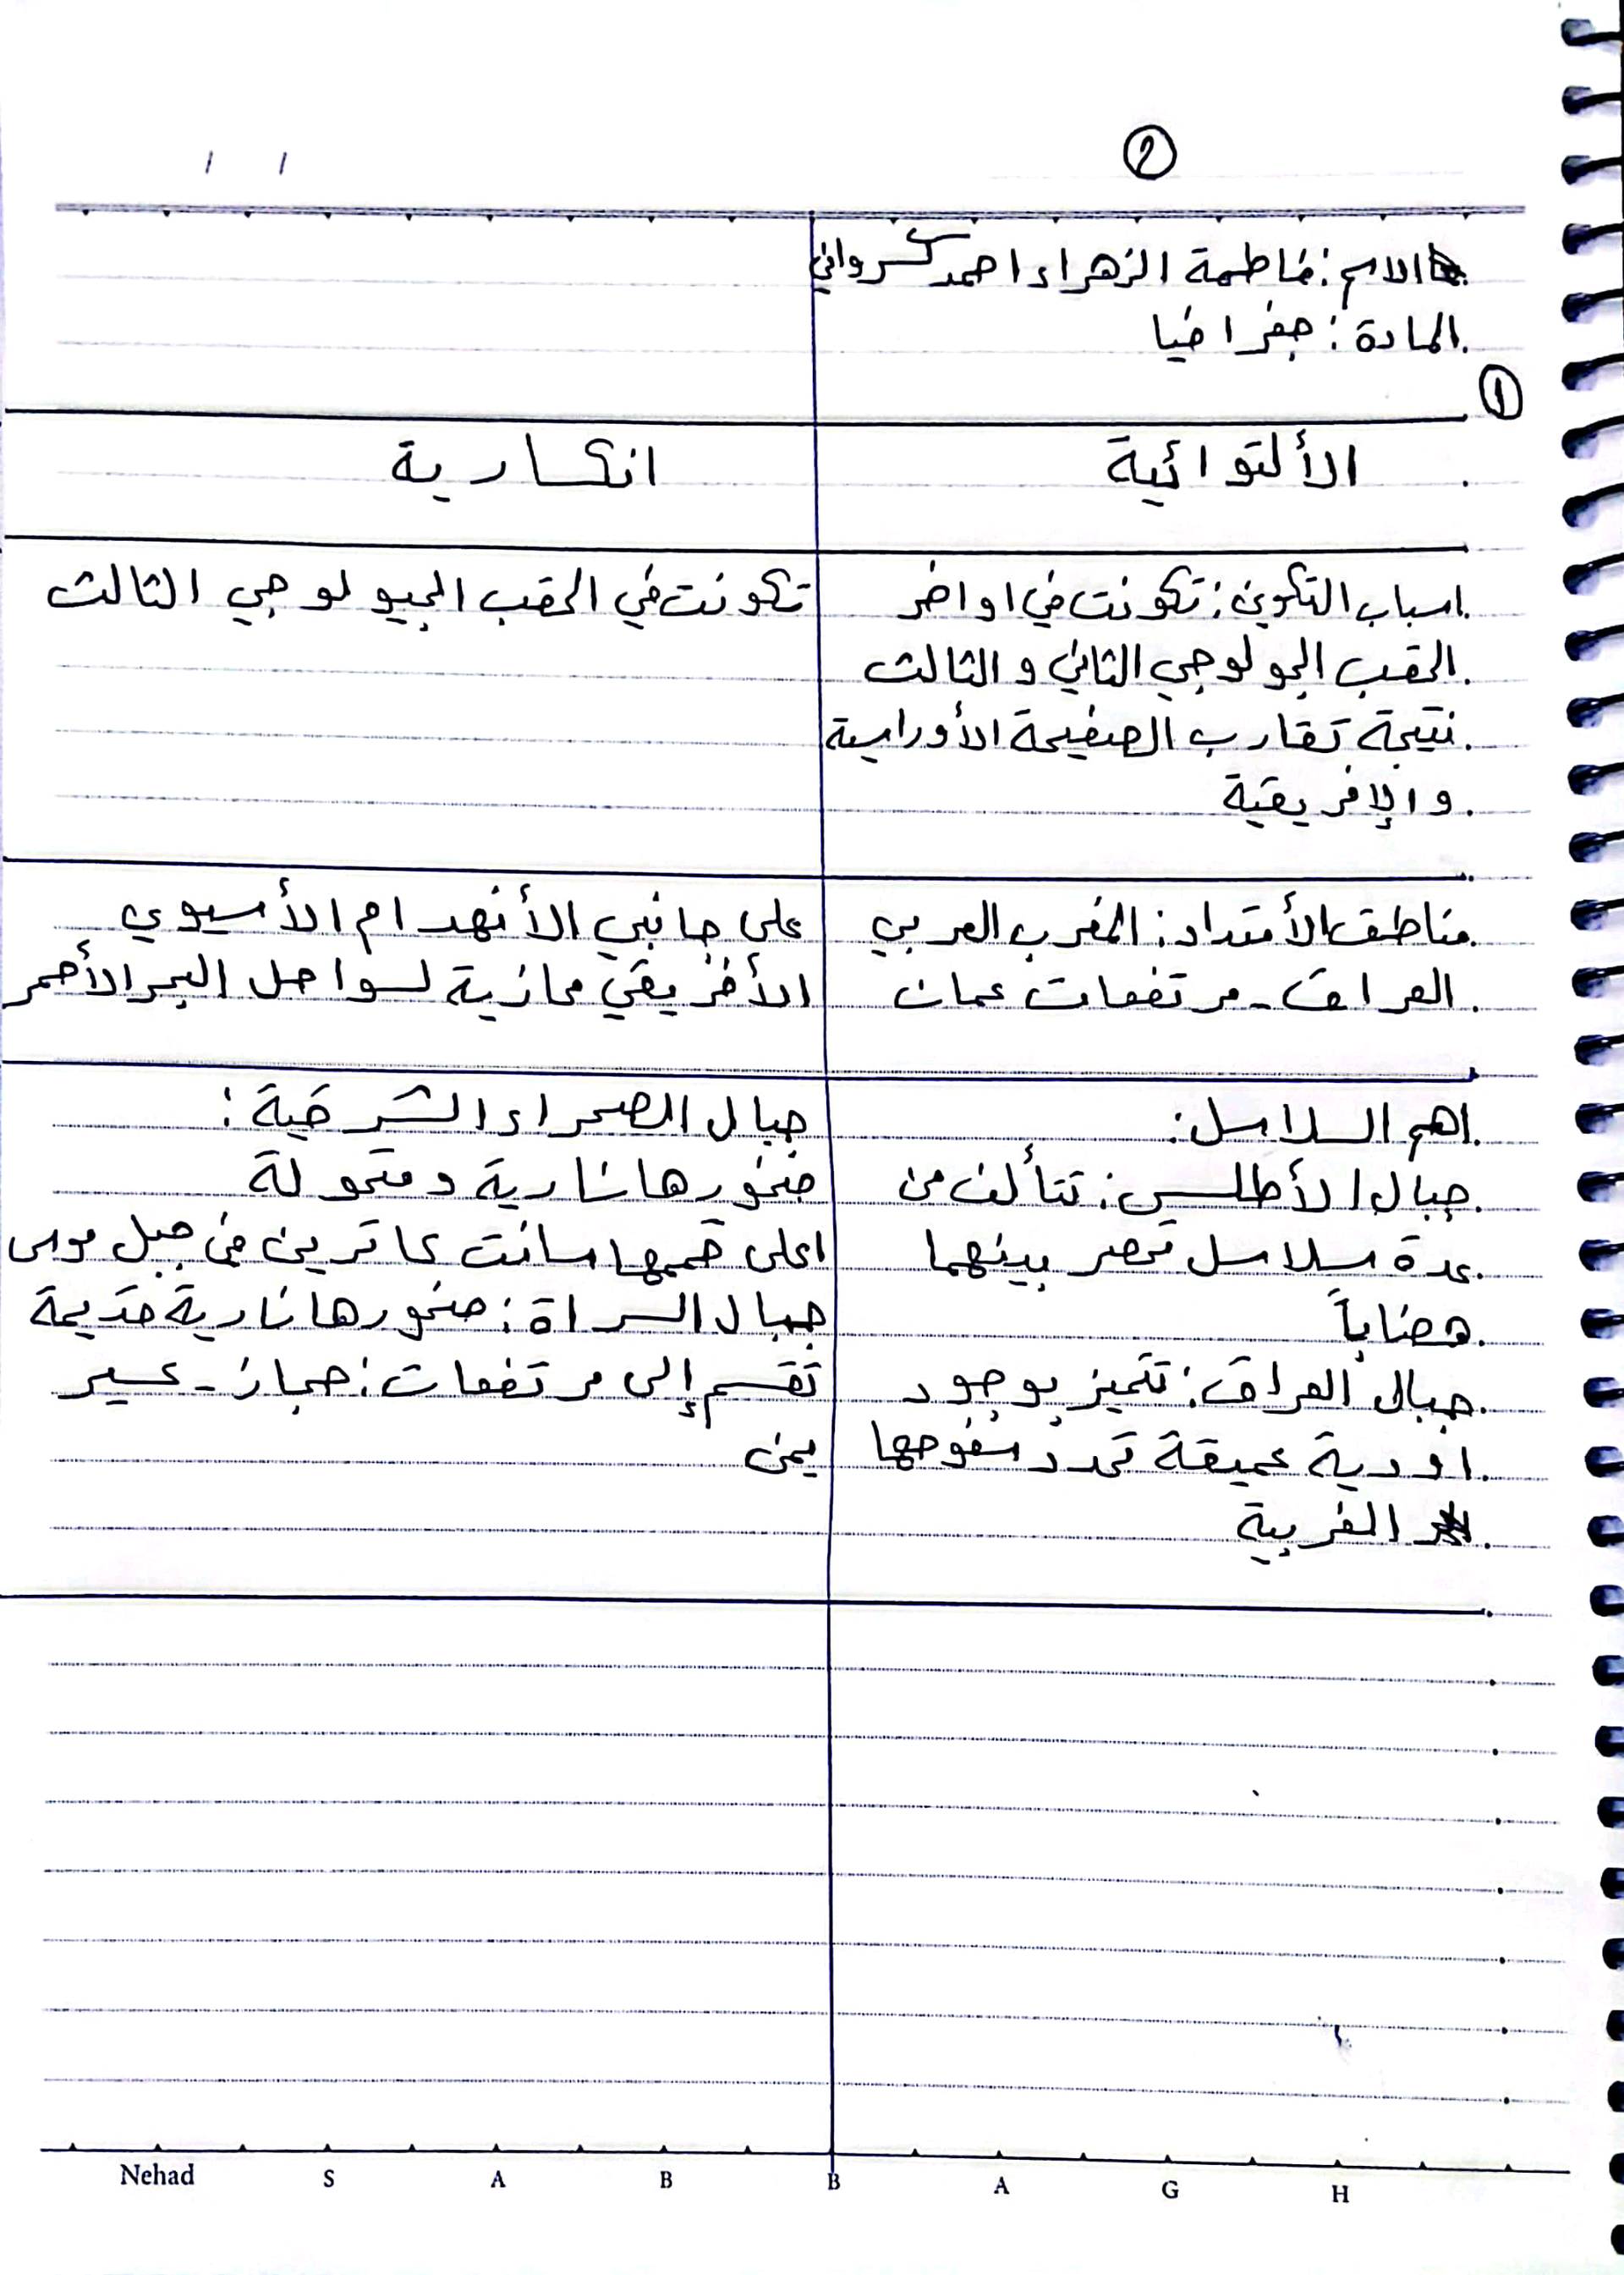 ②
/ /
الاسم: فاطمة الزهراء احمد كسرواني
المادة: جغرافيا
①
الألتوائية
انكسارية
اسباب التكوين: تكونت في اواخر
الحقب الجولوجي الثاني والثالث
نتيجة تقارب الصفيحة الأوراسية
والإفريقية
تكونت في الحقب الجيولوجي الثالث
مناطق الأمتداد: المغرب العربي
العراق - مرتفعات عمان
على جانبي الأنهدام الأسيوي
الأفريقي محازية لسواحل البحر الأحمر
اهم السلاسل:
جبال الأطلس: تتألف من
عدة سلاسل تحصر بينهما
هضاباً
جبال العراق: تتميز بوجود
اودية عميقة تحدد سفوحها
الغربية
جبال الصحراء الشرقية:
صخورها نارية ومتحولة
اعلى قممها سانت كاترين في جبل موسى
جبال السراة: صخورها نارية قديمة
تقسم إلى مرتفعات: حجاز - عسير
يمن
Nehad S A B B A G H